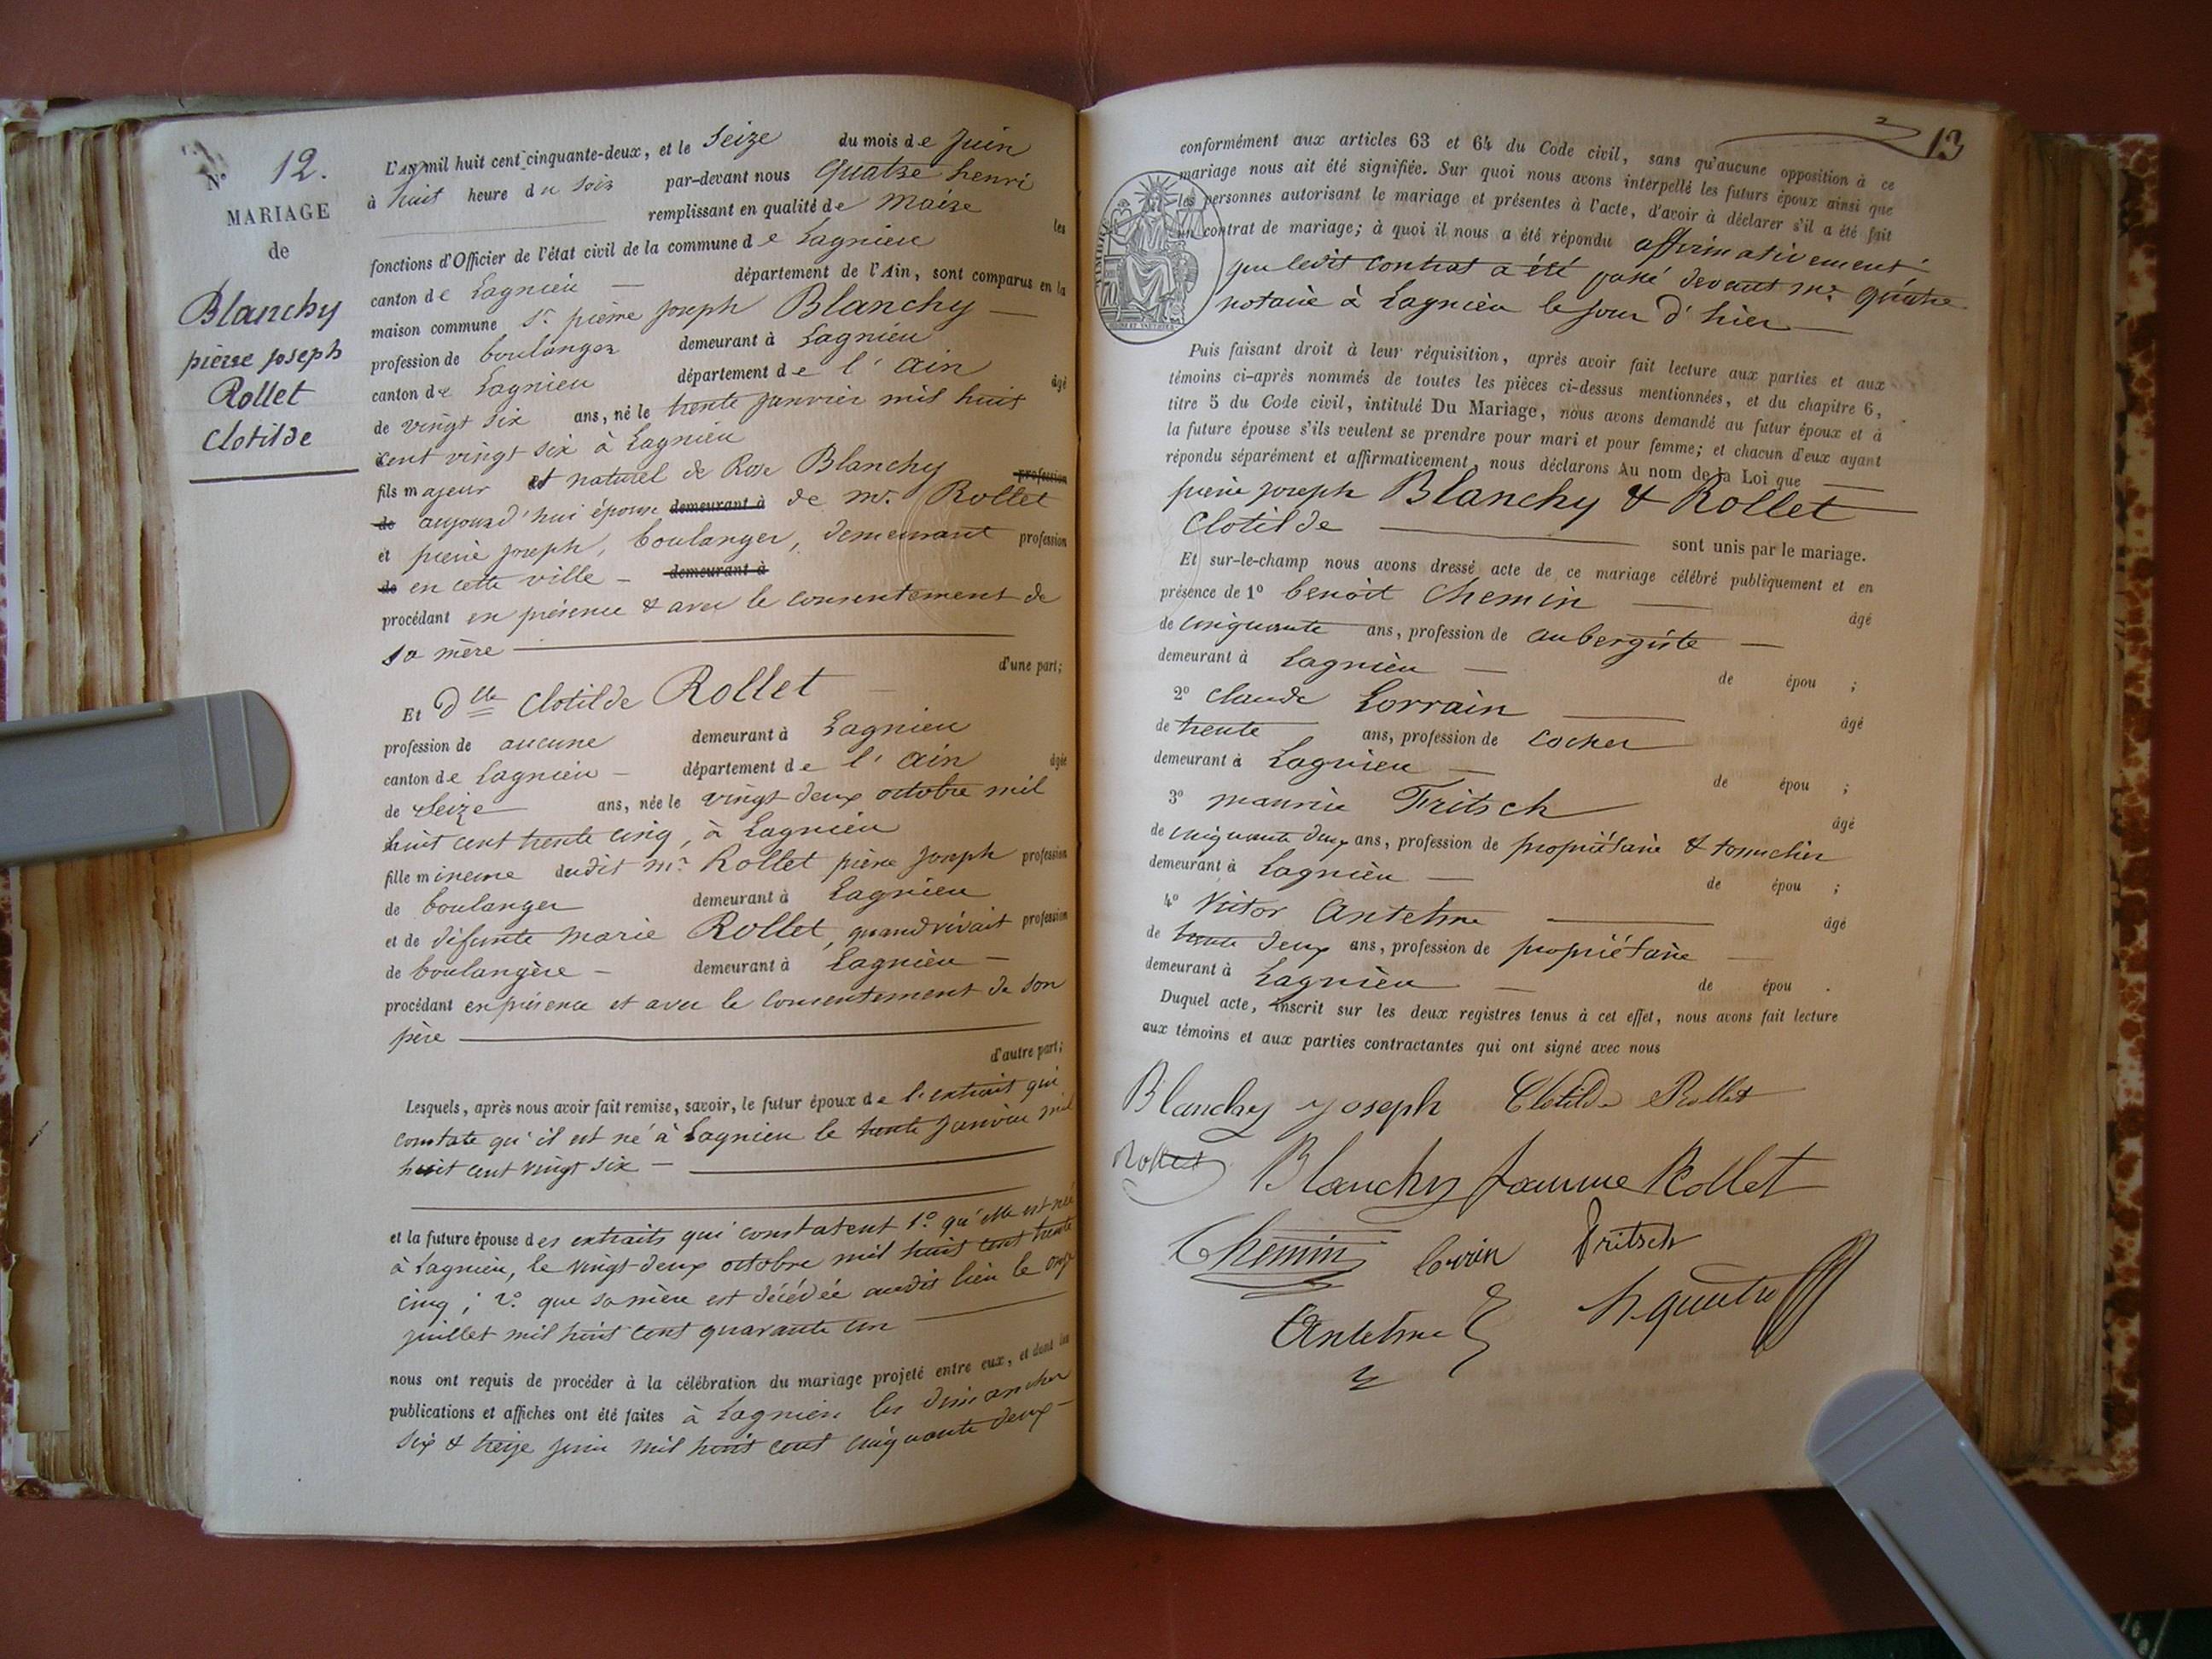 N° 12.
MARIAGE
de
Blanchy
pierre joseph
Rollet
Clotilde
L'AN mil huit cent cinquante-deux, et le Seize du mois de Juin
à huit heure du soir par-devant nous Quatre henri
remplissant en qualité de Maire les
fonctions d'Officier de l'état civil de la commune de Lagnieu
canton de Lagnieu — département de l'Ain, sont comparus en la
maison commune Sr. pierre joseph Blanchy —
profession de boulanger demeurant à Lagnieu
canton de Lagnieu département de l'Ain âgé
de vingt six ans, né le trente janvier mil huit
cent vingt six à Lagnieu
fils majeur et naturel de Rose Blanchy profession
de aujourd'hui épouse demeurant à de mr. Rollet
et pierre joseph, boulanger, demeurant profession
de en cette ville — demeurant à
procédant en présence & avec le consentement de
sa mère
d'une part;
Et Dlle Clotilde Rollet
profession de aucune demeurant à Lagnieu
canton de Lagnieu — département de l'Ain âgée
de Seize ans, née le vingt deux octobre mil
huit cent trente cinq, à Lagnieu
fille mineure dudit mr. Rollet pierre joseph profession
de boulanger demeurant à Lagnieu
et de défunte Marie Rollet, quand vivait profession
de boulangère — demeurant à Lagnieu —
procédant en présence et avec le consentement de son
père
d'autre part;
Lesquels, après nous avoir fait remise, savoir, le futur époux de l'extrait qui
constate qu'il est né à Lagnieu le trente janvier mil
huit cent vingt six —
et la future épouse des extraits qui constatent 1°. qu'elle est née
à Lagnieu, le vingt-deux octobre mil huit cent trente
cinq; 2°. que sa mère est décédée audit lieu le onze
juillet mil huit cent quarante un
nous ont requis de procéder à la célébration du mariage projeté entre eux, et dont les
publications et affiches ont été faites à Lagnieu les dimanches
six & treize juin mil huit cent cinquante deux —
13
conformément aux articles 63 et 64 du Code civil, sans qu'aucune opposition à ce
mariage nous ait été signifiée. Sur quoi nous avons interpellé les futurs époux ainsi que
les personnes autorisant le mariage et présentes à l'acte, d'avoir à déclarer s'il a été fait
un contrat de mariage; à quoi il nous a été répondu affirmativement
que ledit contrat a été passé devant me. Quatre
notaire à Lagnieu le jour d'hier —
Puis faisant droit à leur réquisition, après avoir fait lecture aux parties et aux
témoins ci-après nommés de toutes les pièces ci-dessus mentionnées, et du chapitre 6,
titre 5 du Code civil, intitulé Du Mariage, nous avons demandé au futur époux et à
la future épouse s'ils veulent se prendre pour mari et pour femme; et chacun d'eux ayant
répondu séparément et affirmativement, nous déclarons Au nom de la Loi que
pierre joseph Blanchy & Rollet
Clotilde sont unis par le mariage.
Et sur-le-champ nous avons dressé acte de ce mariage célébré publiquement et en
présence de 1° benoît Chemin — âgé
de cinquante ans, profession de aubergiste —
demeurant à Lagnieu — de épou ;
2° Claude Lorrain âgé
de trente ans, profession de cocher
demeurant à Lagnieu — de épou ;
3° maurice Fritsch âgé
de cinquante deux ans, profession de propriétaire &
demeurant à Lagnieu — de épou ;
4° Victor Anthelme âgé
de trente deux ans, profession de propriétaire —
demeurant à Lagnieu — de épou .
Duquel acte, inscrit sur les deux registres tenus à cet effet, nous avons fait lecture
aux témoins et aux parties contractantes qui ont signé avec nous
Blanchy joseph Clotilde Rollet
Rollet Blanchy femme Rollet
Chemin lorrin Fritsch
Anthelme h. quatre